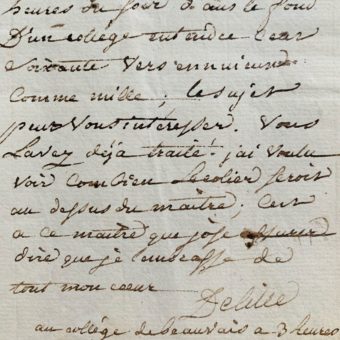 heures du jour dans le fond
D'un collége entendre ces
soixante vers ennuient
comme mille; le sujet
peut vous interesser. Vous
Lavez déja traité! j'ai voulu
voir combien lecolier seroit
au dessous du maitre; C'est
a ce maitre que j'ose
dire que je embrasse de
tout mon cœur
Delille
au collége de beauvais a 3 heures